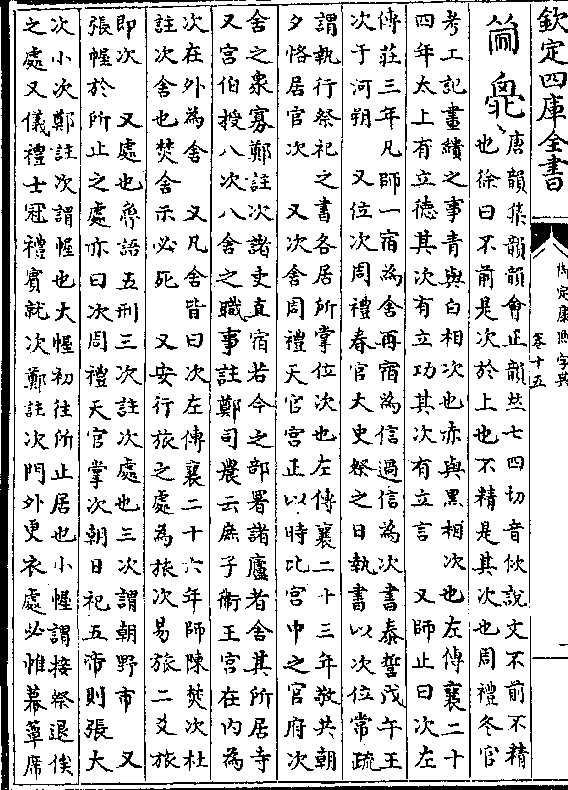 欽定四庫全書
御定康熙字典
卷十五
唐韻集韻韻會正韻𠀤七四切音佽說文不前不精
也徐曰不前是次於上也不精是其次也周禮冬官
考工記畫繢之事青與白相次也赤與黑相次也左傳襄二十
四年太上有立德其次有立功其次有立言 又師止曰次左
傳莊三年凡師一宿為舍再宿為信過信為次 書泰誓戊午王
次于河朔 又位次周禮春官大史祭之日執書以次位常疏
謂執行祭祀之書各居所掌位次也左傳襄二十三年敬共朝
夕恪居官次 又次舍周禮天官宮正以時比宮中之官府次
舍之衆寡鄭註次諸吏直宿若今之部署諸廬者舍其所居寺
又宮伯授八次八舍之職事註鄭司農云庶子衞王宮在內為
次在外為舍 又凡舍皆曰次左傳襄二十六年師陳焚次杜
註次舍也焚舍示必死 又安行旅之處為旅次易旅二爻旅
即次 又處也魯語五刑三次註次處也三次謂朝野市 又
張幄於所止之處亦曰次周禮天官掌次朝日祀五帝則張大
次小次鄭註次謂幄也大幄初往所止居也小幄謂接祭退俟
之處又儀禮士冠禮賓就次鄭註次門外更衣處必帷幕簟席